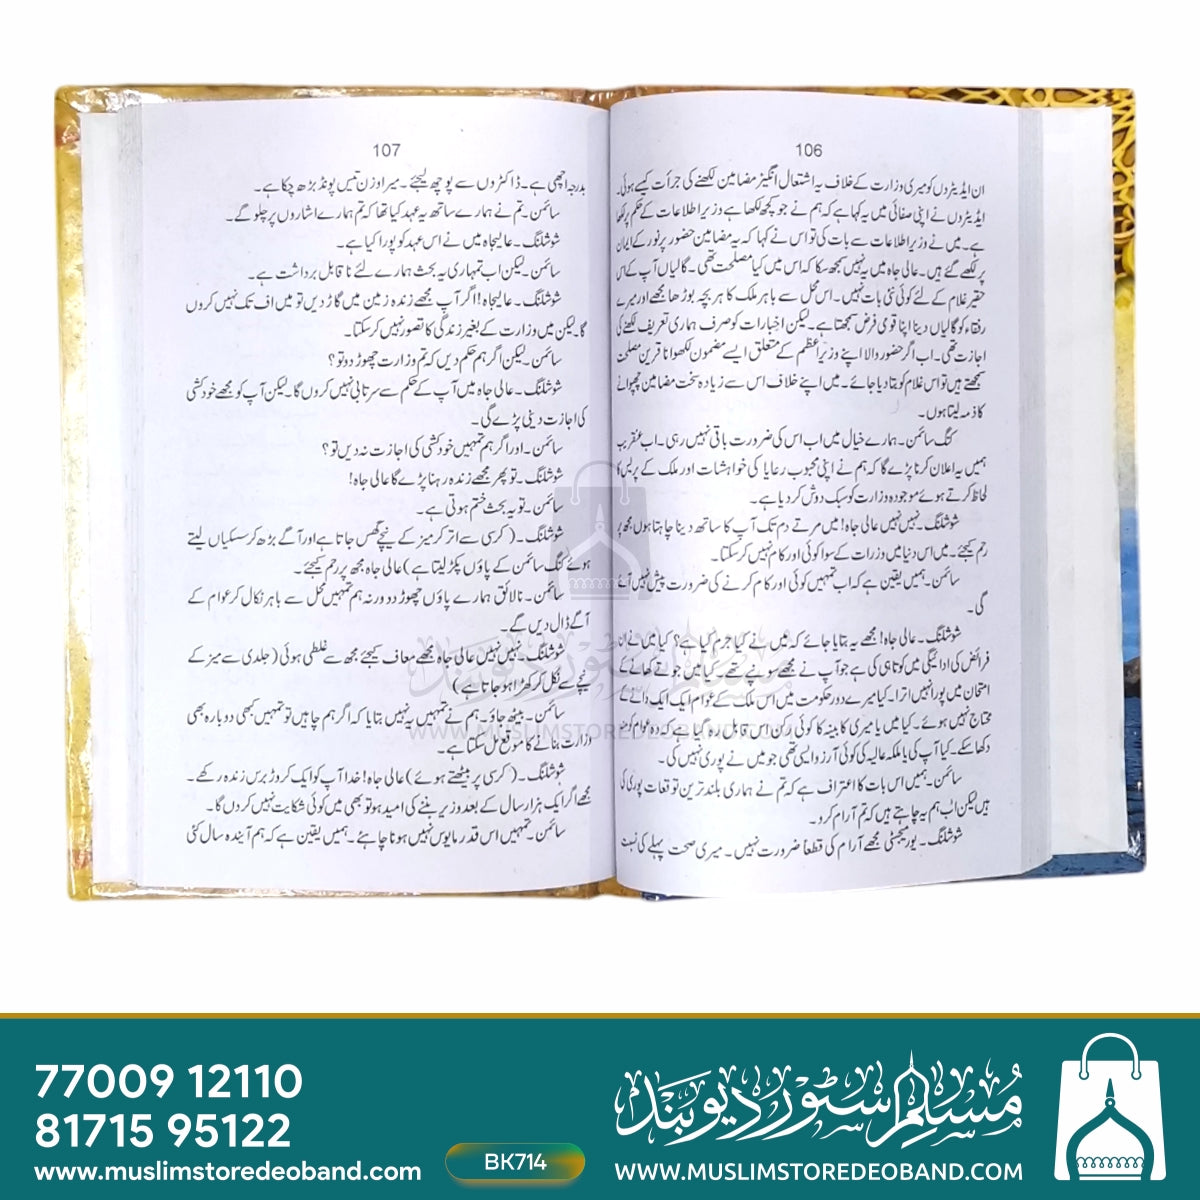 106
ان ایڈیٹروں کو میری وزارت کے خلاف یہ اشتعال انگیز مضامین لکھنے کی جرأت کیسے ہوئی۔
ایڈیٹروں نے اپنی صفائی میں یہ کہا ہے کہ ہم نے جو کچھ لکھا ہے وزیر اطلاعات کے حکم پر لکھا
ہے۔ میں نے وزیر اطلاعات سے بات کی تو اس نے کہا کہ یہ مضامین حضور پر نور کے ایماں
پر لکھے گئے ہیں۔ عالی جاہ میں یہ نہیں سمجھ سکا کہ اس میں کیا مصلحت تھی۔ گالیاں آپ کے اس
حقیر غلام کے لئے کوئی نئی بات نہیں۔ اس محل سے باہر ملک کا ہر بچہ بوڑھا مجھے اور میرے
رفقاء کو گالیاں دینا اپنا قومی فرض سمجھتا ہے۔ لیکن اخبارات کو صرف ہماری تعریف لکھنے کی
اجازت تھی۔ اب اگر حضور والا اپنے وزیر اعظم کے متعلق ایسے مضمون لکھوانا قرین مصلحت
سمجھتے ہیں تو اس غلام کو بتا دیا جائے۔ میں اپنے خلاف اس سے زیادہ سخت مضامین چھپوانے
کا ذمہ لیتا ہوں۔
کنگ سائمن۔ ہمارے خیال میں اب اس کی ضرورت باقی نہیں رہی۔ اب عنقریب
ہمیں یہ اعلان کرنا پڑے گا کہ ہم نے اپنی محبوب رعایا کی خواہشات اور ملک کے پریس کا
لحاظ کرتے ہوئے موجودہ وزارت کو سبک دوش کر دیا ہے۔
شوشلنگ۔ نہیں نہیں عالی جاہ! میں مرتے دم تک آپ کا ساتھ دینا چاہتا ہوں مجھ پر
رحم کیجئے۔ میں اس دنیا میں وزرات کے سوا کوئی اور کام نہیں کر سکتا۔
سائمن۔ ہمیں یقین ہے کہ اب تمہیں کوئی اور کام کرنے کی ضرورت پیش نہیں آئے
گی۔
شوشلنگ۔ عالی جاہ! مجھے یہ بتایا جائے کہ میں نے کیا جرم کیا ہے؟ کیا میں نے ان
فرائض کی ادائیگی میں کوتاہی کی ہے جو آپ نے مجھے سونپے تھے۔ کیا میں جوتے کھانے کے
امتحان میں پورا نہیں اترا۔ کیا میرے دور حکومت میں اس ملک کے عوام ایک ایک دانے کے
محتاج نہیں ہوئے۔ کیا میں یا میری کابینہ کا کوئی رکن اس قابل رہ گیا ہے کہ وہ عوام کو منہ
دکھا سکے۔ کیا آپ کی یا ملکہ عالیہ کی کوئی آرزو ایسی تھی جو میں نے پوری نہیں کی۔
سائمن۔ ہمیں اس بات کا اعتراف ہے کہ تم نے ہماری بلند ترین توقعات پوری کی
ہیں لیکن اب ہم یہ چاہتے ہیں کہ تم آرام کرو۔
شوشلنگ۔ یور میجسٹی مجھے آرام کی قطعاً ضرورت نہیں۔ میری صحت پہلے کی نسبت
107
بدرجہ اچھی ہے۔ ڈاکٹروں سے پوچھ لیجئے۔ میرا وزن تیس پونڈ بڑھ چکا ہے۔
سائمن۔ تم نے ہمارے ساتھ یہ عہد کیا تھا کہ تم ہمارے اشاروں پر چلو گے۔
شوشلنگ۔ عالیجاہ میں نے اس عہد کو پورا کیا ہے۔
سائمن۔ لیکن اب تمہاری یہ بحث ہمارے لئے نا قابل برداشت ہے۔
شوشلنگ۔ عالیجاہ! اگر آپ مجھے زندہ زمین میں گاڑ دیں تو میں اف تک نہیں کروں
گا۔ لیکن میں وزارت کے بغیر زندگی کا تصور نہیں کر سکتا۔
سائمن۔ لیکن اگر ہم حکم دیں کہ تم وزارت چھوڑ دو تو؟
شوشلنگ۔ عالی جاہ میں آپ کے حکم سے سرتابی نہیں کروں گا۔ لیکن آپ کو مجھے خودکشی
کی اجازت دینی پڑے گی۔
سائمن۔ اور اگر ہم تمہیں خودکشی کی اجازت نہ دیں تو؟
شوشلنگ۔ تو پھر مجھے زندہ رہنا پڑے گا عالی جاہ!
سائمن۔ تو یہ بحث ختم ہوتی ہے۔
شوشلنگ۔ (کرسی سے اتر کر میز کے نیچے گھس جاتا ہے اور آگے بڑھ کر سسکیاں لیتے
ہوئے کنگ سائمن کے پاؤں پکڑ لیتا ہے) عالی جاہ مجھ پر رحم کیجئے۔
سائمن۔ نالائق ہمارے پاؤں چھوڑ دو ورنہ ہم تمہیں محل سے باہر نکال کر عوام کے
آگے ڈال دیں گے۔
شوشلنگ۔ نہیں نہیں عالی جاہ مجھے معاف کیجئے مجھ سے غلطی ہوئی (جلدی سے میز کے
نیچے سے نکل کر کھڑا ہو جاتا ہے)
سائمن۔ بیٹھ جاؤ۔ ہم نے تمہیں یہ نہیں بتایا کہ اگر ہم چاہیں تو تمہیں کبھی دوبارہ بھی
وزارت بنانے کا موقع مل سکتا ہے۔
شوشلنگ۔ (کرسی پر بیٹھتے ہوئے) عالی جاہ! خدا آپ کو ایک کروڑ برس زندہ رکھے۔
مجھے اگر ایک ہزار سال کے بعد وزیر بننے کی امید ہو تو بھی میں کوئی شکایت نہیں کر دوں گا۔
سائمن۔ تمہیں اس قدر مایوس نہیں ہونا چاہئے۔ ہمیں یقین ہے کہ ہم آیندہ سال کئی
مسلم سٹور دیوبند
WWW.MUSLIMSTOREDEOBAND.COM
77009 12110
81715 95122
www.muslimstoredeoband.com
BK714
مسلم سٹور دیوبند
WWW.MUSLIMSTOREDEOBAND.COM